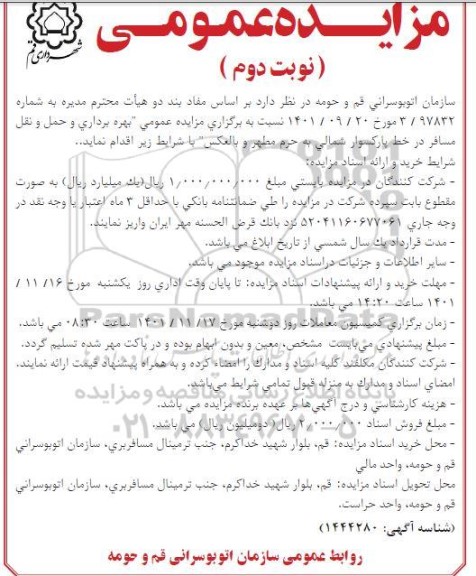 مزایده عمومی
(نوبت دوم)
شهرداری قم
سازمان اتوبوسراني قم و حومه در نظر دارد بر اساس مفاد بند دو هیأت محترم مدیره به شماره
۳/۹۷۸۳۲ مورخ ۲۰ / ۰۹ / ۱۴۰۱ نسبت به برگزاري مزایده عمومي "بهره برداري و حمل و نقل
مسافر در خط پارکسوار شمالي به حرم مطهر و بالعکس" با شرایط زیر اقدام نماید..
شرایط خرید و ارائه اسناد مزایده:
- شرکت کنندگان در مزایده بایستي مبلغ ۱,۰۰۰,۰۰۰,۰۰۰ ریال(یك میلیارد ریال) به صورت
مقطوع بابت سپرده شرکت در مزایده را طي ضمانتنامه بانکي با حداقل ۳ ماه اعتبار یا وجه نقد در
وجه جاري ۵۲۰۴۱۱۶۰۶۷۷۰۶۱ نزد بانك قرض الحسنه مهر ایران واریز نمایند.
- مدت قرارداد یك سال شمسي از تاریخ ابلاغ مي باشد.
- سایر اطلاعات و جزئیات دراسناد مزایده موجود مي باشد.
- مهلت خرید و ارائه پیشنهادات اسناد مزایده: تا پایان وقت اداري روز یکشنبه مورخ ۱۶/ ۱۱ /
۱۴۰۱ ساعت ۱۴:۲۰ مي باشد.
- زمان برگزاري کمیسیون معاملات روز دوشنبه مورخ ۱۷/ ۱۱ / ۱۴۰۱ ساعت ۰۸:۳۰ مي باشد.
- مبلغ پیشنهادي مي‌بایست مشخص، معین و بدون ابهام بوده و در پاکت مهر شده تسلیم گردد.
- شرکت کنندگان مکلفند کلیه اسناد و مدارك را امضاء کرده و به همراه پیشنهاد قیمت ارائه نمایند.
امضاي اسناد و مدارك به منزله قبول تمامي شرایط مي‌باشد.
- هزینه کارشناسي و درج آگهي‌ها بر عهده برنده مزایده مي باشد.
- مبلغ فروش اسناد ۲,۰۰۰,۰۰۰ ریال( دومیلیون ریال) مي باشد.
- محل خرید اسناد مزایده: قم، بلوار شهید خداکرم، جنب ترمینال مسافربري، سازمان اتوبوسراني
قم و حومه، واحد مالي
محل تحویل اسناد مزایده: قم، بلوار شهید خداکرم، جنب ترمینال مسافربري، سازمان اتوبوسراني
قم و حومه، واحد حراست.
(شناسه آگهی: ۱۴۴۴۲۸۰)
روابط عمومی سازمان اتوبوسرانی قم و حومه
ParsNamadData
پایگاه اطلاع رسانی مناقصه و مزایده
۰۲۱-۸۸۳۴۹۶۷۰-۵